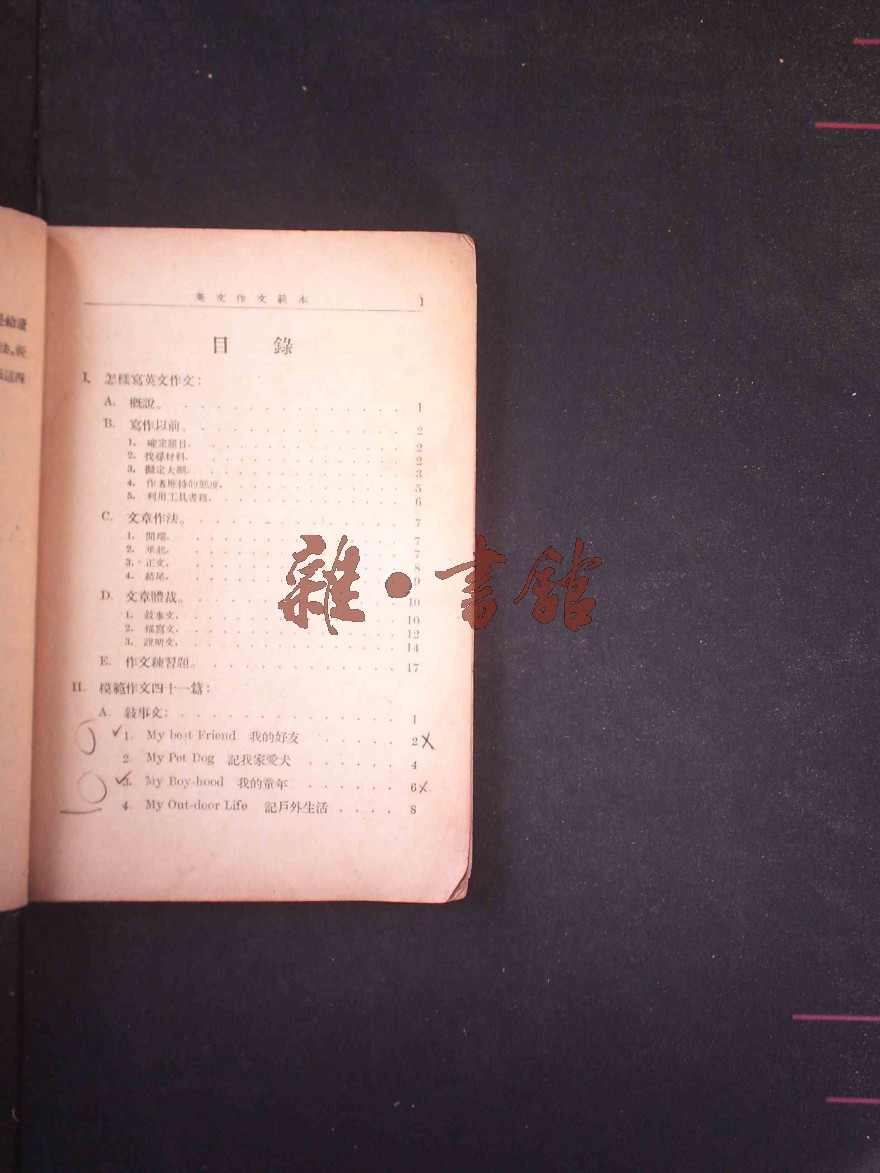 英文作文範本 1
目 錄
I. 怎樣寫英文作文:
A. 概說。 . . . . . . . . . . . . 1
B. 寫作以前。 . . . . . . . . . . . 2
1. 確定題目. . . . . . . . . . . . 2
2. 找尋材料. . . . . . . . . . . . 2
3. 擬定大綱. . . . . . . . . . . . 3
4. 作者應持的態度. . . . . . . . . . 5
5. 利用工具書籍. . . . . . . . . . . 6
C. 文章作法。 . . . . . . . . . . . 7
1. 開端. . . . . . . . . . . . . 7
2. 承起. . . . . . . . . . . . . 7
3. 正文. . . . . . . . . . . . . 8
4. 結尾. . . . . . . . . . . . . 9
D. 文章體裁。 . . . . . . . . . . . 10
1. 敍事文. . . . . . . . . . . . 10
2. 描寫文. . . . . . . . . . . . 12
3. 說明文. . . . . . . . . . . . 14
E. 作文練習題。 . . . . . . . . . . 17
II. 模範作文四十一篇:
A. 敍事文: . . . . . . . . . . . 1
1. My best Friend 我的好友 . . . . . . 2
2. My Pet Dog 記我家愛犬 . . . . . . 4
3. My Boy-hood 我的童年 . . . . . . . 6
4. My Out-door Life 記戶外生活 . . . . 8
雜·書舘